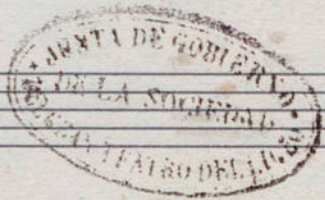 JUNTA DE GOBIERNO
DE LA SOCIEDAD
GRAN TEATRO DEL LICEO